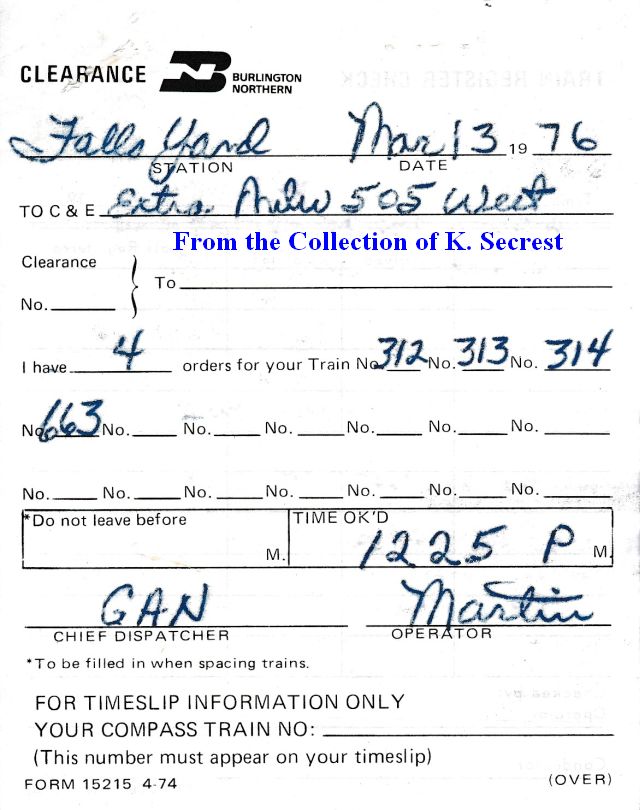 CLEARANCE BN BURLINGTON NORTHERN
Falls Yard Mar 13 19 76
STATION DATE
TO C & E Extra Milw 505 West
From the Collection of K. Secrest
Clearance
No. To
I have 4 orders for your Train No. 312 No. 313 No. 314
No. 663 No. No. No. No. No. No.
No. No. No. No. No. No. No.
*Do not leave before TIME OK'D
M. 1225 P M.
GAN Martin
CHIEF DISPATCHER OPERATOR
*To be filled in when spacing trains.
FOR TIMESLIP INFORMATION ONLY
YOUR COMPASS TRAIN NO:
(This number must appear on your timeslip)
FORM 15215 4-74 (OVER)